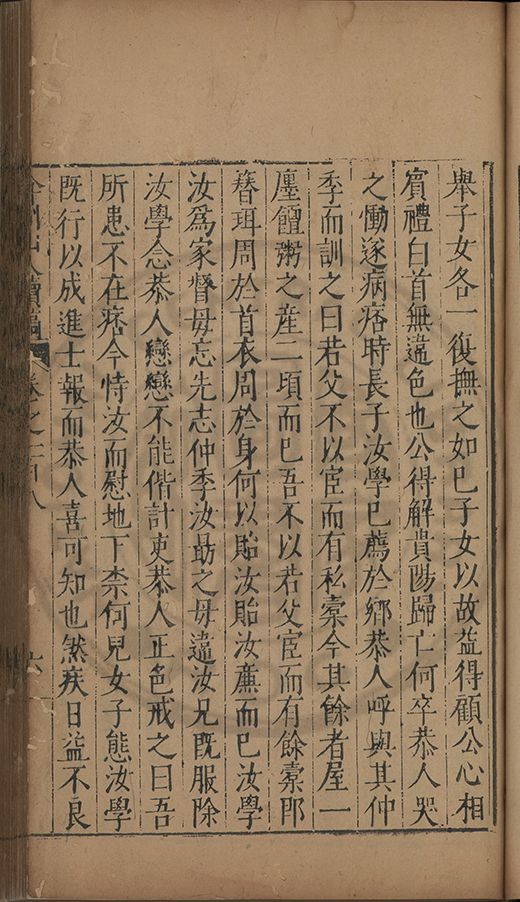 舉子女各一復撫之如已子女以故益得顧公心相
賓禮白首無違色也公得解貴陽歸亡何卒恭人哭
之慟遂病痞時長子汝學已薦於鄉恭人呼與其仲
季而訓之曰若父不以宦而有私槖今其餘者屋一
廛饘粥之産二頃而已吾不以若父宦而有餘槖即
簪珥周於首衣周於身何以貽汝貽汝廉而已汝學
汝爲家督毋忘先志仲季汝勗之毋違汝兄既服除
汝學念恭人戀戀不能偕計吏恭人正色戒之曰吾
所患不在痞今恃汝而慰地下柰何兒女子態汝學
既行以成進士報而恭人喜可知也然疾日益不良
續稿 卷之一百八 六